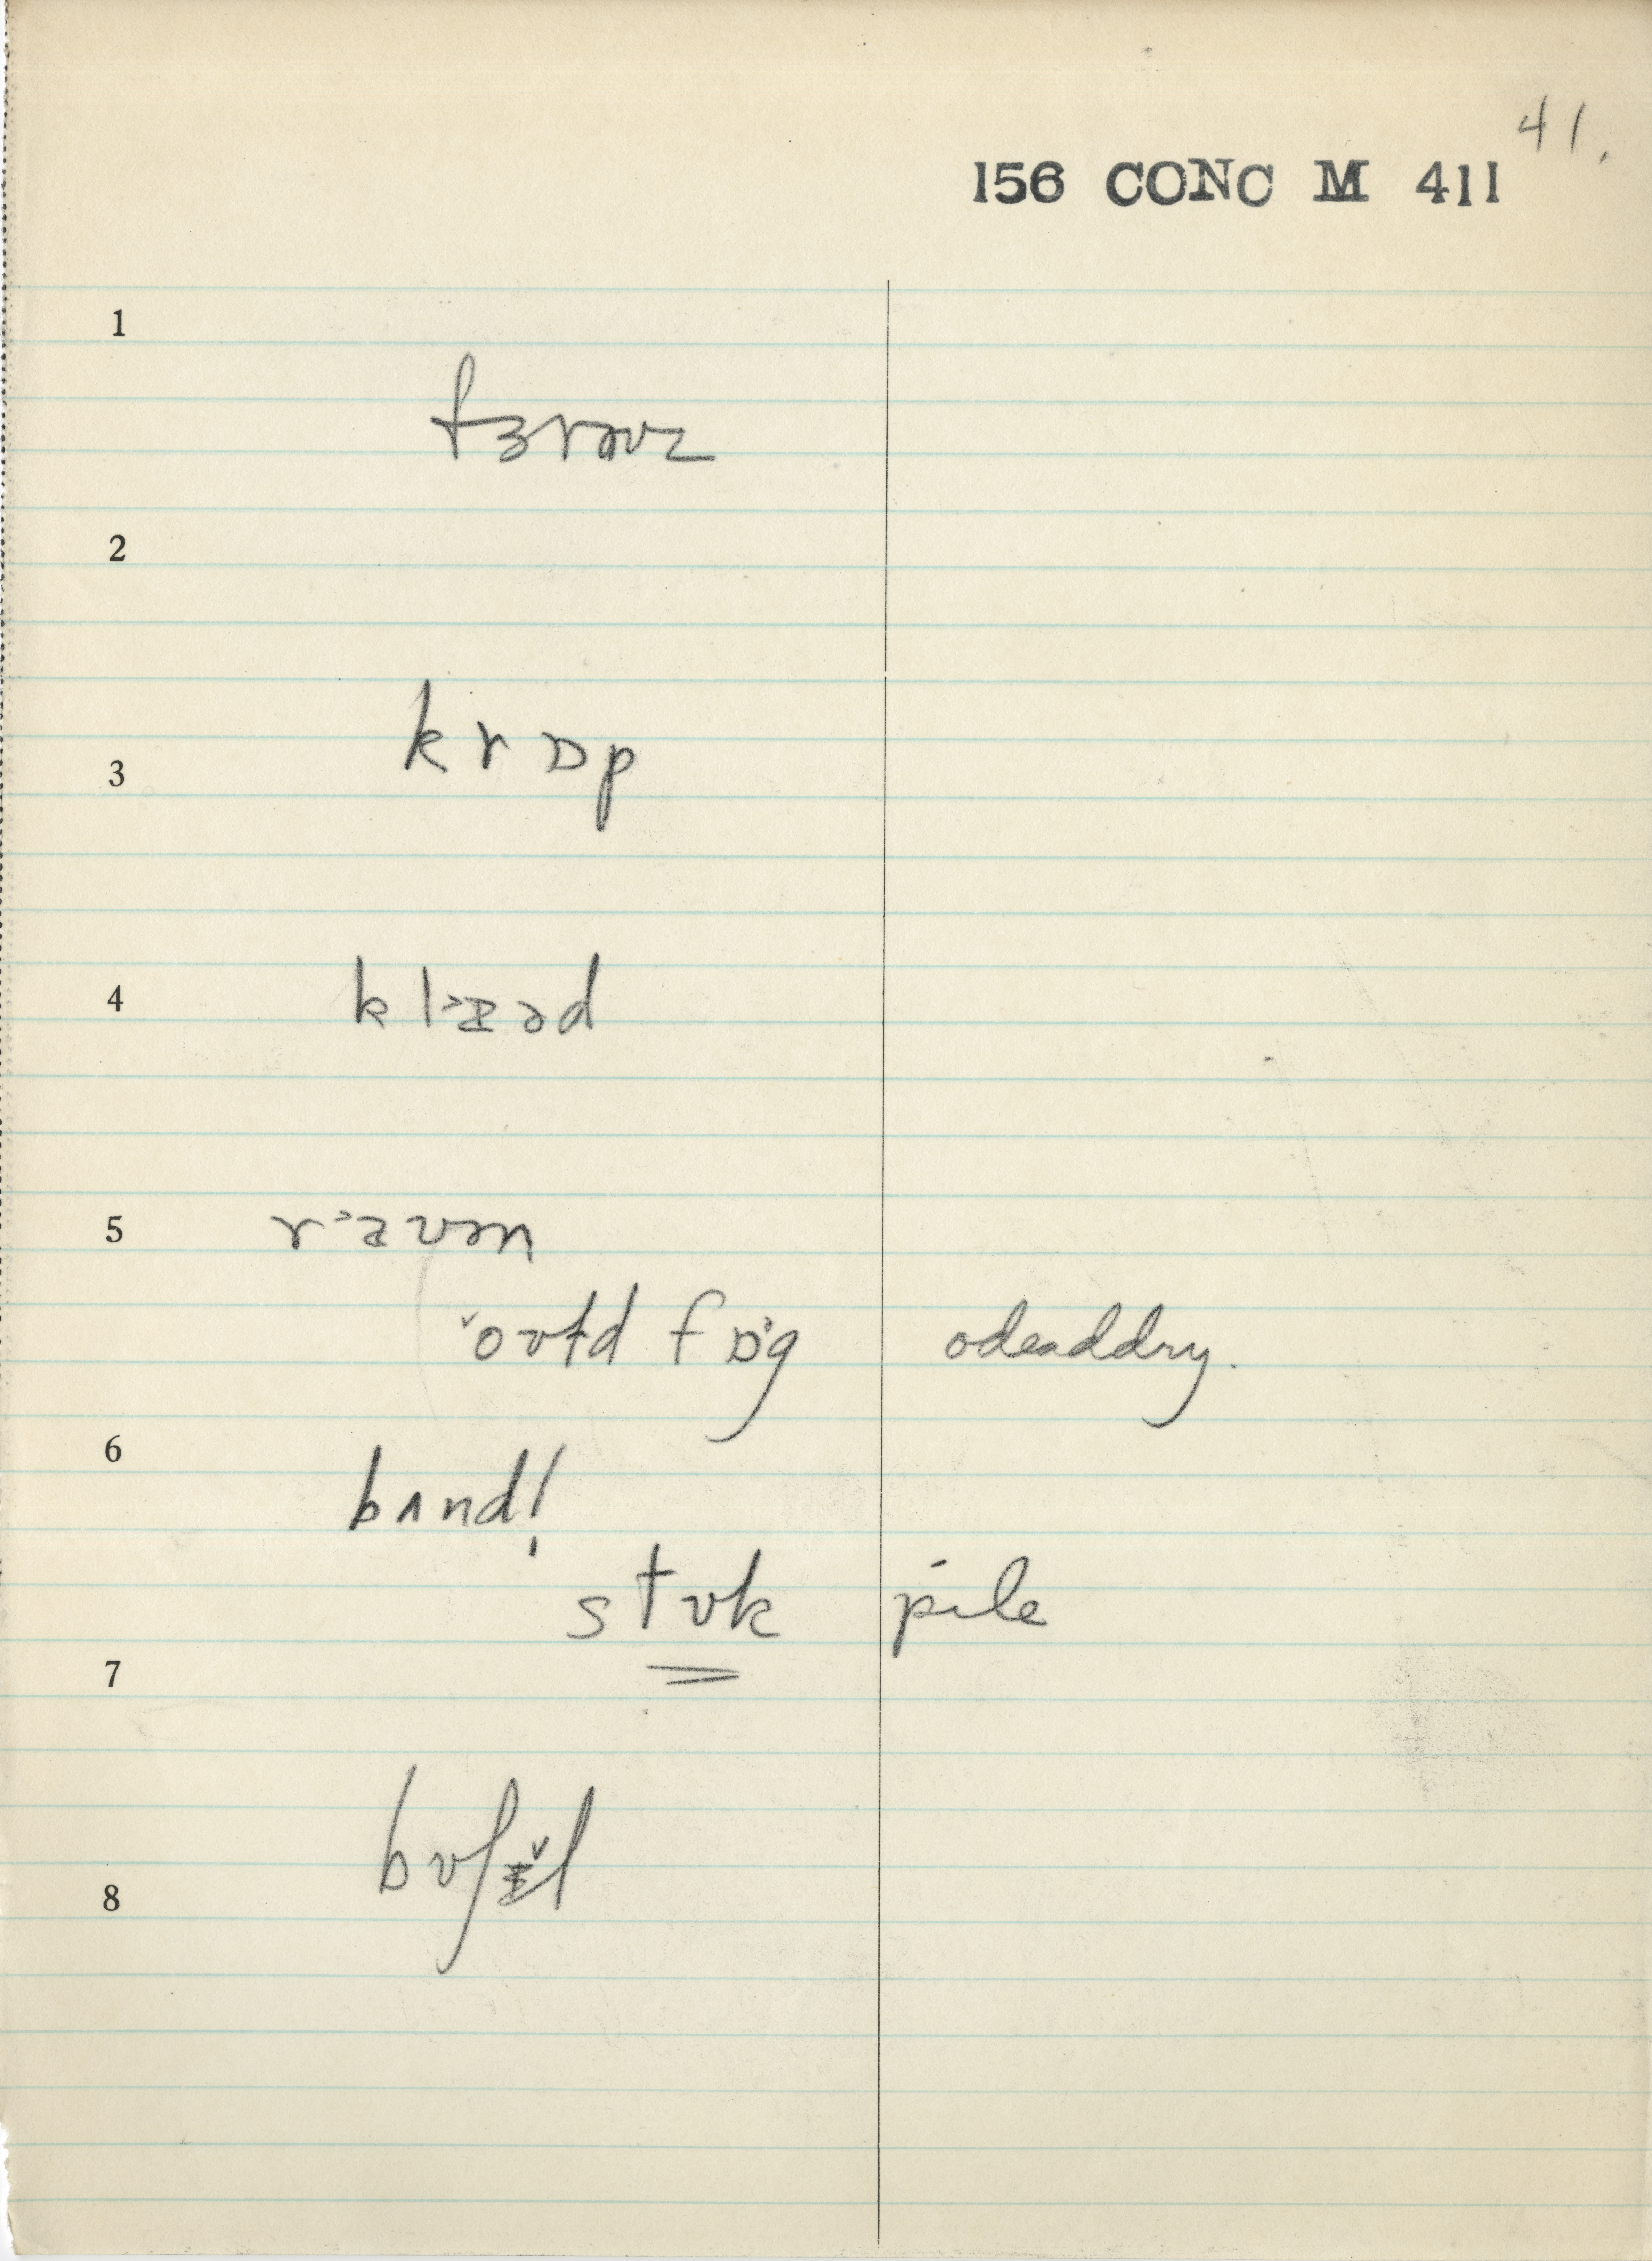 41.
156 CONC M 411
1
fɜrəʊz
2
krɒp
3
4
klæˑəd
5
ræˑvən
oʊtd fɒg odeaddry.
6
bʌnd!
stʊk pile
7
bʊʃ
8